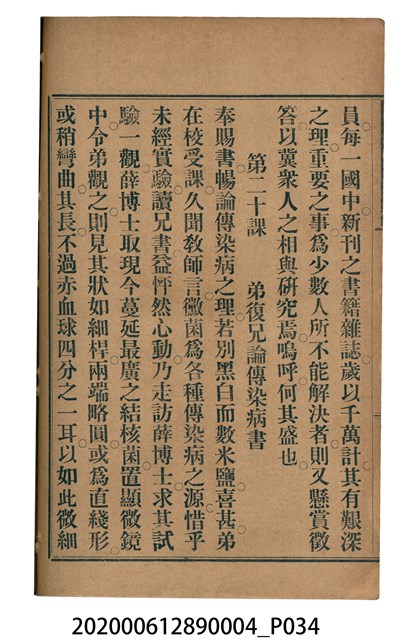 員每一國中新刊之書籍雜誌歲以千萬計其有艱深
之理重要之事爲少數人所不能解決者則又懸賞徵
答以冀衆人之相與硏究焉嗚呼何其盛也
第二十課　弟復兄論傳染病書
奉賜書暢論傳染病之理若別黑白而數米鹽喜甚弟
在校受課久聞敎師言黴菌爲各種傳染病之源惜乎
未經實驗讀兄書益怦然心動乃走訪薛博士求其試
驗一觀薛博士取現今蔓延最廣之結核菌置顯微鏡
中令弟觀之則見其狀如細桿兩端略圓或爲直綫形
或稍彎曲其長不過赤血球四分之一耳以如此微細
202000612890004_P034